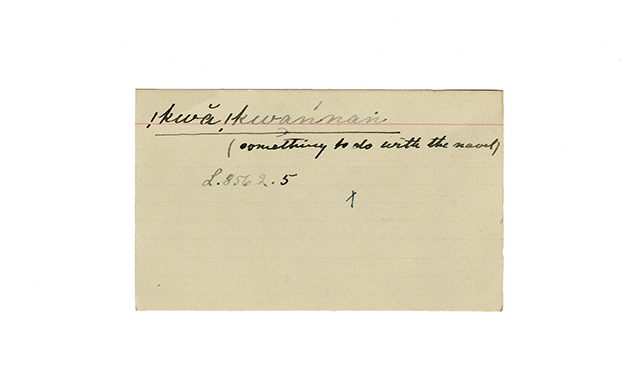 !kwă, !kwańnań
(something to do with the navel)
L.8562.5
X